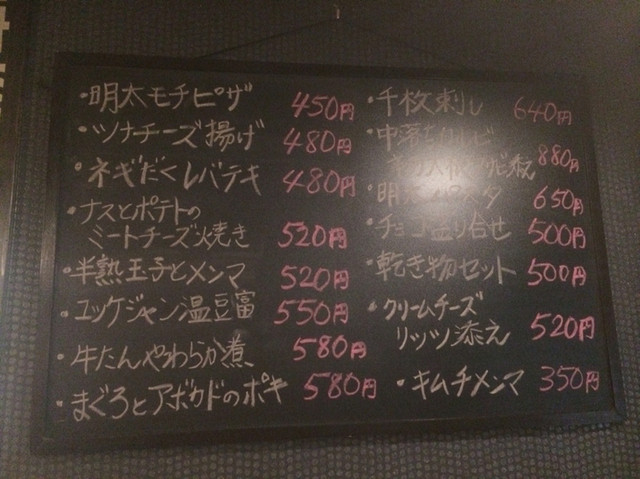 ・明太モチピザ 450円
・ツナチーズ揚げ 480円
・ネギだくレバテキ 480円
・ナスとポテトの
ミートチーズ焼き 520円
・半熟玉子とメンマ 520円
・ユッケジャン温豆富 550円
・牛たんやわらか煮 580円
・まぐろとアボカドのポキ 580円
・千枚刺し 640円
・中落ち
添え 880円
・明太 パスタ 650円
・チョコ盛り合せ 500円
・乾き物セット 500円
・クリームチーズ
リッツ添え 520円
・キムチメンマ 350円